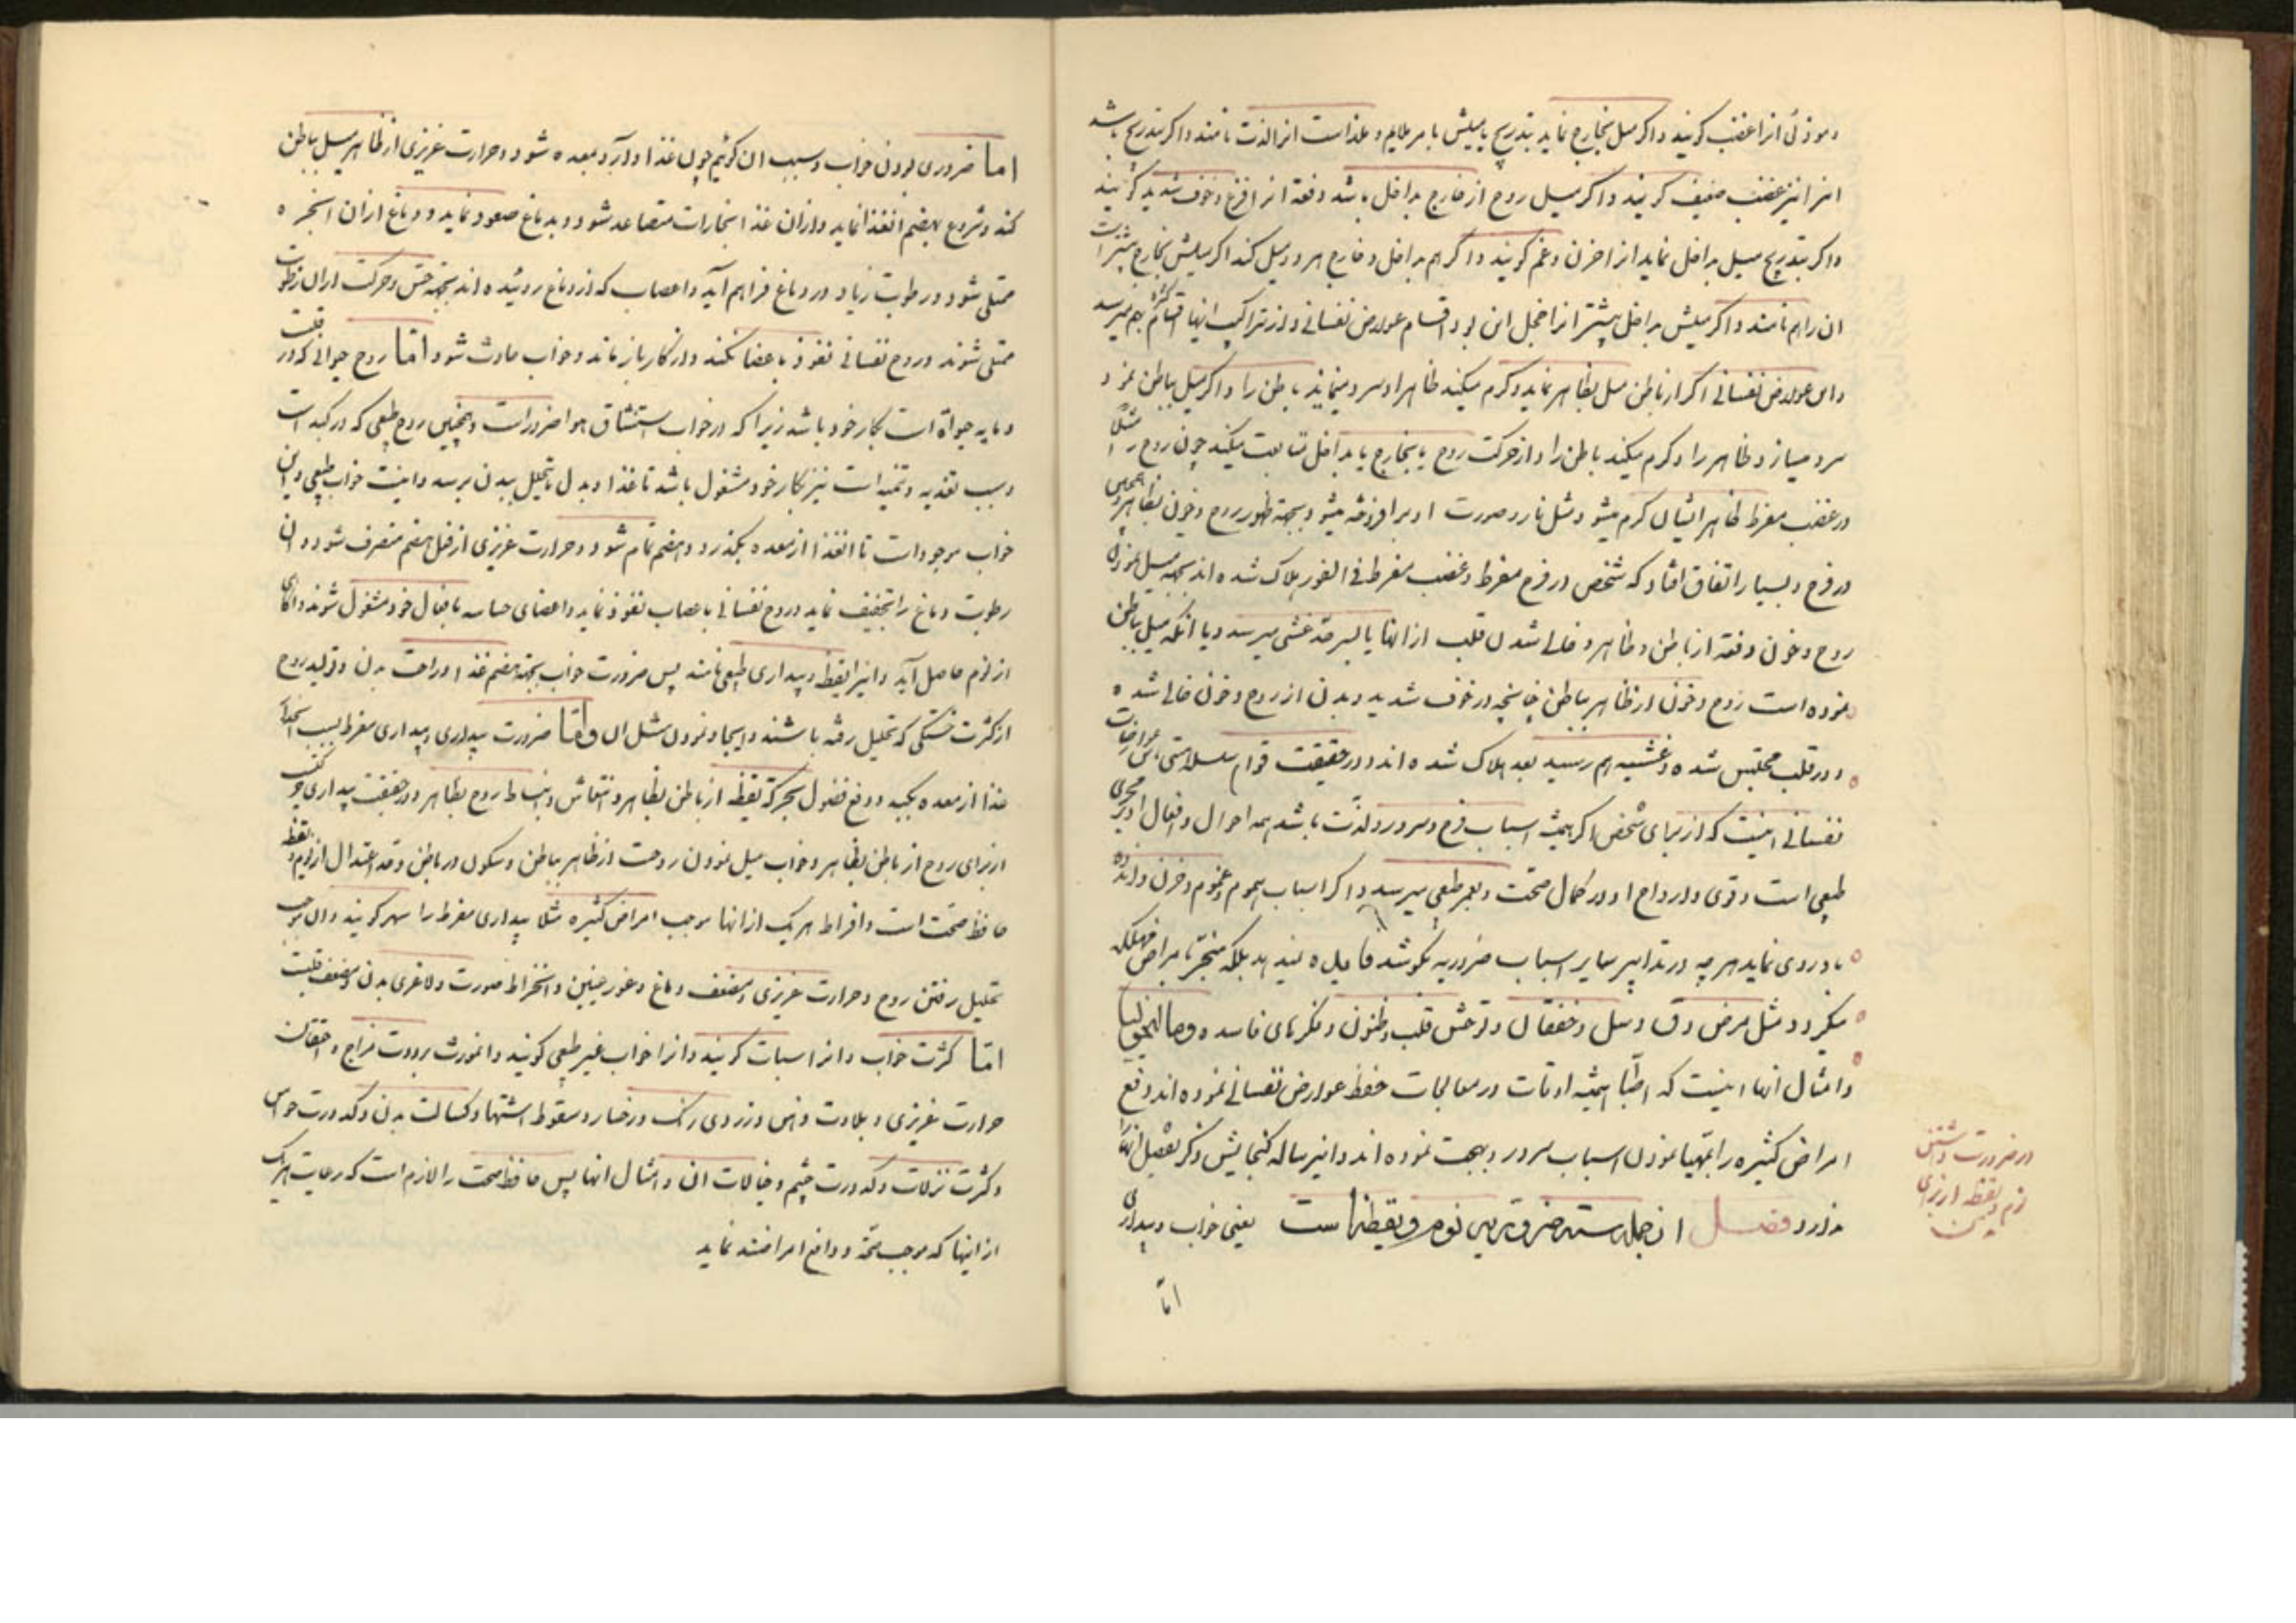 و موذئی انرا غضب کویند و اکر میل بخارج نماید بتدریج یا میلش با مر ملایم و ملذ است انرا لذت نامند و اکر بتدریج باشد
انرا نیز غضب ضعیف کویند و اکر میل روح از خارج بداخل باشد دفعة انرا فزع و خوف شدید کویند
و اکر بتدریج میل بداخل نماید انرا حزن و غم کویند و اکر هم بداخل و خارج هر دو میل کند اکر میلش بخارج بیشتر است
ان را هم نامند و اکر میلش بداخل بیشتر انرا خجل این بود اقسام عوارض نفسانی و از تراکیب اینها اقسام کثیره بهم میرسد
و این عوارض نفسانی اکر از باطن میل بظاهر نماید و کرم میکند ظاهر را و سرد مینماید باطن را و اکر میل بباطن نمود
سرد میسازد ظاهر را و کرم میکند باطن را و از حرکت روح یا بخارج یا بداخل متابعت میکند خون روح را مثلا
در غضب مفرط ظاهر انسان کرم میشود مثل نار و صورت او بر افروخته میشود بجهة ظهور روح و خون بظاهر و همچنین
در فرح و بسیار اتفاق افتاد که شخص در فرح مفرط و غضب مفرط فی الفور هلاک شده اند بجهة میل نمودن
روح و خون دفعة از باطن و ظاهر و خالی شدن قلب از انها یا لامحاله غشی میرسد و یا انکه میل بباطن
نموده است روح و خون از ظاهر بباطن چنانچه در خوف شدید و بدن از روح و خون خالی شده
و در قلب محتبس شده و غشی بهم رسید بعد هلاک شده اند و در حقیقت قوام سلامتی عوارضات
نفسانی اینست که از برای شخص اکر همیشه اسباب فرح و سرور و لذت باشد همه احوال و افعال او بر مجری
طبیعی است و قوی و ارواح او در کمال صحت و بعمر طبیعی میرسد و اکر اسباب هموم و غموم و حزن و اندوه
باو روی نماید هر چه در تدابیر سایر اسباب ضروریه بکوشد فایده نمیدهد بلکه منجر بامراض مهلکه
میکردد مثل مرض دق و سل و خفقان و توحش قلب و ظنون و فکرهای فاسده و مالیخولیا
و امثال انها اینست که اطبا همیشه اوقات در معالجات حفظ عوارض نفسانی نموده اند و دفع
امراض کثیره را بمهیا نمودن اسباب سرور و بهجت نموده اند و این رساله کنجایش ذکر تفصیل انها
ندارد فصل از جمله سته ضروریه نوم و یقظه است یعنی خواب و بیداری
اما
در ضرورت داشتن
نوم و یقظه از برای
بدن
اما ضروری بودن خواب و سبب ان کوئیم چون غذا وارد معده شود و حرارت غریزی از ظاهر میل بباطن
کند و شروع بهضم انغذا نماید و از ان غذا بخارات متصاعد شود و بدماغ صعود نماید و دماغ از ان ابخره
ممتلی شود و رطوبت زیاد در دماغ فراهم آید و اعصاب که از دماغ روئیده اند بجهة حس و حرکت از ان رطوبت
ممتلی شوند و روح نفسانی نفوذ باعضا نکند و از کار باز ماند و خواب حادث شود اما روح حیوانی که در قلبست
و مایه حیوة است بکار خود باشد زیرا که در خواب استنشاق هوا ضرور است و همچنین روح طبیعی که در کبد است
و سبب تغذیه و تنمیه است نیز بکار خود مشغول باشد تا غذا و بدل مایتحلل ببدن برسد و اینست خواب طبیعی و این
خواب موجود است تا انغذا از معده بکذرد و هضم تمام شود و حرارت غریزی از فعل هضم منصرف شود و ان
رطوبت دماغ را تجفیف نماید و روح نفسانی باعصاب نفوذ نماید و اعضای حساسه بافعال خود مشغول شوند و اکاهی
از نوم حاصل آید و انرا یقظه و بیداری طبیعی نامند پس ضرورت خواب بجهة هضم غذا و راحت بدن و تولید روح
از کثرت خستکی که تحلیل رفته باشند و ایجاد نمودن مثل ان و اما ضرورت بیداری و بیداری مفرط بسبب انحدار
غذا از معده بکبد و دفع فضول بحرکة یقظه از باطن بظاهر و انتعاش و انبساط روح بظاهر و در حقیقت بیداری حرکتست
از برای روح از باطن بظاهر و خواب میل نمودن روحست از ظاهر بباطن و سکون در باطن و قدر اعتدال از نوم و یقظه
حافظ صحت است و افراط هر یک از انها موجب امراض کثیره مثلا بیداری مفرط را سهر کویند و ان موجب
تحلیل رفتن روح و حرارت غریزی و ضعف دماغ و غور عینین و انخراط صورت و لاغری بدن و ضعف قلبست
اما کثرت خواب و انرا سبات کویند و انرا خواب غیر طبیعی کویند و انمورث برودت مزاج و احتقان
حرارت غریزی و بلادت ذهن و زردی رنک و رخسار و سقوط اشتها و کسالت بدن و کدورت حواس
و کثرت نزلات و کدورت چشم و خیالات ان و امثال انها پس حافظ صحت را لازم است که رعایت هر یک
از اینها که موجب صحة و دافع امراضند نماید